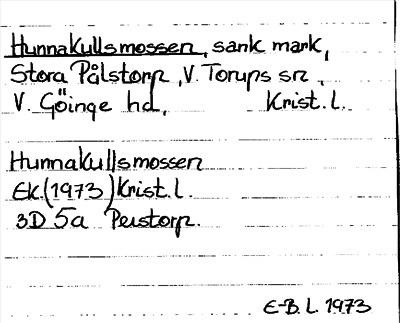 Hunnakullsmossen, sank mark,
Stora Pålstorp, V. Torups sn,
V. Göinge hd, Krist. l.
Hunnakullsmossen
Ek. (1973) Krist. l.
3D 5a Perstorp.
E-B. L. 1973